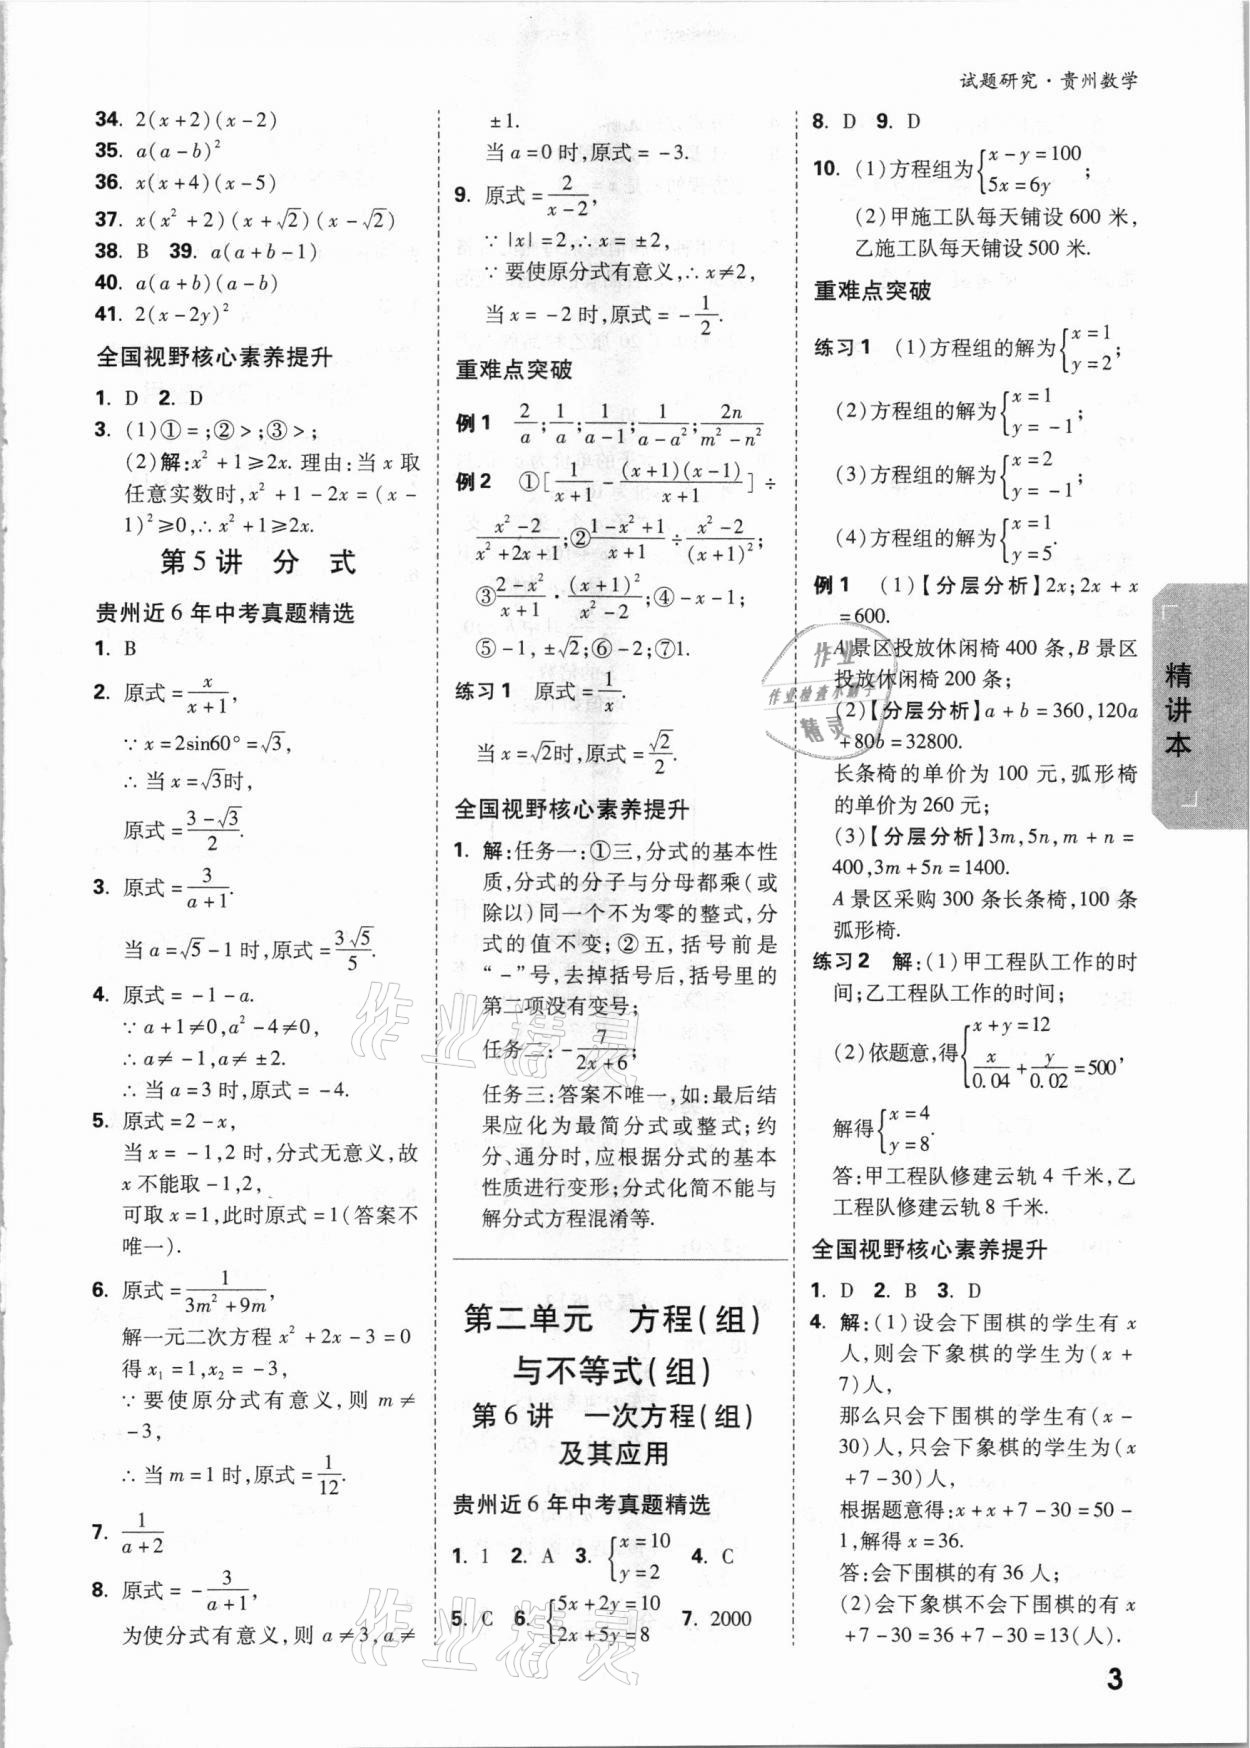 试题研究·贵州数学
34. 2(x+2)(x-2)
35. a(a-b)²
36. x(x+4)(x-5)
37. x(x²+2)(x+√2)(x-√2)
38. B 39. a(a+b-1)
40. a(a+b)(a-b)
41. 2(x-2y)²
全国视野核心素养提升
1. D 2. D
3. (1)①=;②>;③>;
(2)解:x²+1≥2x. 理由:当x取
任意实数时,x²+1-2x=(x-
1)²≥0,∴x²+1≥2x.
第5讲 分 式
贵州近6年中考真题精选
1. B
2. 原式=x/(x+1),
∵x=2sin60°=√3,
∴当x=√3时,
原式=(3-√3)/2.
3. 原式=3/(a+1).
当a=√5-1时,原式=3√5/5.
4. 原式=-1-a.
∵a+1≠0,a²-4≠0,
∴a≠-1,a≠±2.
∴当a=3时,原式=-4.
5. 原式=2-x,
当x=-1,2时,分式无意义,故
x不能取-1,2,
可取x=1,此时原式=1(答案不
唯一).
6. 原式=1/(3m²+9m),
解一元二次方程x²+2x-3=0
得x₁=1,x₂=-3,
∵要使原分式有意义,则m≠
-3,
∴当m=1时,原式=1/12.
7. 1/(a+2)
8. 原式=-3/(a+1),
为使分式有意义,则a≠3,a≠
±1.
当a=0时,原式=-3.
9. 原式=2/(x-2),
∵|x|=2,∴x=±2,
∵要使原分式有意义,∴x≠2,
当x=-2时,原式=-1/2.
重难点突破
例1 2/a;1/a;1/(a-1);1/(a-a²);2n/(m²-n²)
例2 ①[1/(x+1)-(x+1)(x-1)/(x+1)]÷
(x²-2)/(x²+2x+1);②(1-x²+1)/(x+1)÷(x²-2)/(x+1)²;
③(2-x²)/(x+1)·(x+1)²/(x²-2);④-x-1;
⑤-1,±√2;⑥-2;⑦1.
练习1 原式=1/x.
当x=√2时,原式=√2/2.
全国视野核心素养提升
1. 解:任务一:①三,分式的基本性
质,分式的分子与分母都乘(或
除以)同一个不为零的整式,分
式的值不变;②五,括号前是
“-”号,去掉括号后,括号里的
第二项没有变号;
任务二:-7/(2x+6);
任务三:答案不唯一,如:最后结
果应化为最简分式或整式;约
分、通分时,应根据分式的基本
性质进行变形;分式化简不能与
解分式方程混淆等.
第二单元 方程(组)
与不等式(组)
第6讲 一次方程(组)
及其应用
贵州近6年中考真题精选
1. 1 2. A 3. {x=10 y=2 4. C
5. C 6. {5x+2y=10 2x+5y=8 7. 2000
8. D 9. D
10. (1)方程组为{x-y=100 5x=6y;
(2)甲施工队每天铺设600米,
乙施工队每天铺设500米.
重难点突破
练习1 (1)方程组的解为{x=1 y=2;
(2)方程组的解为{x=1 y=-1;
(3)方程组的解为{x=2 y=-1;
(4)方程组的解为{x=1 y=5.
例1 (1)【分层分析】2x;2x+x
=600.
A景区投放休闲椅400条,B景
区投放休闲椅200条;
(2)【分层分析】a+b=360,120a
+80b=32800.
长条椅的单价为100元,弧形椅
的单价为260元;
(3)【分层分析】3m,5n,m+n=
400,3m+5n=1400.
A景区采购300条长条椅,100条
弧形椅.
练习2 解:(1)甲工程队工作的时
间;乙工程队工作的时间;
(2)依题意,得{x+y=12 x/0.04+y/0.02=500,
解得{x=4 y=8.
答:甲工程队修建云轨4千米,乙
工程队修建云轨8千米.
全国视野核心素养提升
1. D 2. B 3. D
4. 解:(1)设会下围棋的学生有x
人,则会下象棋的学生为(x+
7)人,
那么只会下围棋的学生有(x-
30)人,只会下象棋的学生为(x
+7-30)人,
根据题意得:x+x+7-30=50-
1,解得x=36.
答:会下围棋的有36人;
(2)会下象棋不会下围棋的有x
+7-30=36+7-30=13(人).
精讲本
3
作业
作业检查小助手
精灵
作业精灵
作业精灵